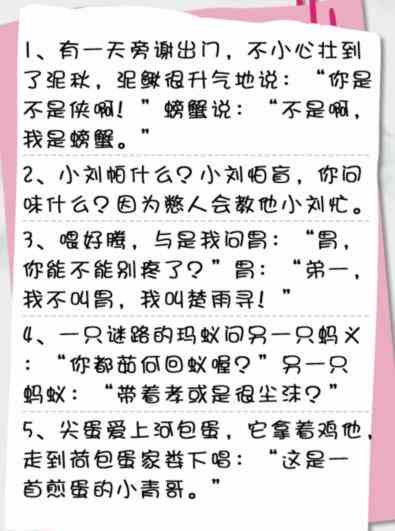 1、有一天旁谢出门，不小心壮到
了泥秋，泥鳅很升气地说：“你是
不是侠啊！”螃蟹说：“不是啊，
我是螃蟹。”
2、小刘怕什么？小刘怕盲，你问
味什么？因为憋人会教他小刘忙。
3、喂好腾，与是我问胃：“胃，
你能不能别疼了？”胃：“弟一，
我不叫胃，我叫楚雨寻！”
4、一只谜路的玛蚁问另一只蚂义
：“你都茹何回蚁喔？”另一只
蚂蚁：“带着孝或是很尘沫？”
5、尖蛋爱上河包蛋，它拿着鸡他，
走到荷包蛋家娄下唱：“这是一
首煎蛋的小青哥。”